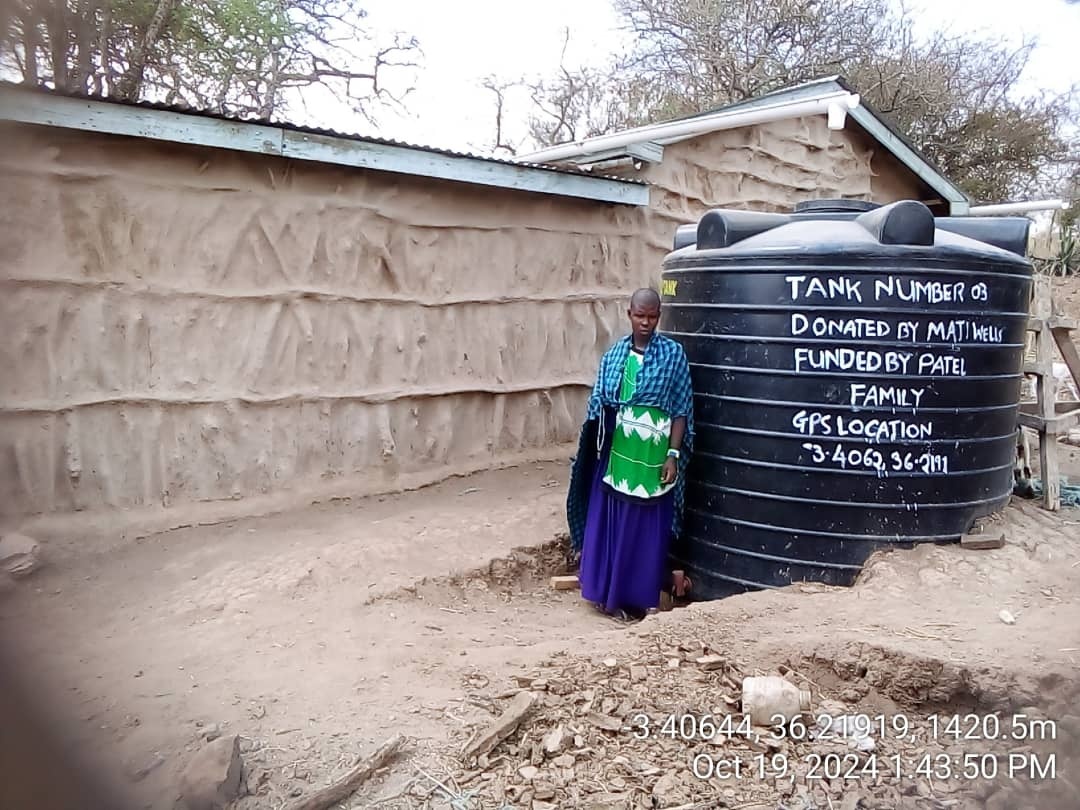 TANK
TANK NUMBER 03
DONATED BY MAJI WELLS
FUNDED BY PATEL
FAMILY
GPS LOCATION
-3.4062, 36.2191
-3.40644, 36.21919, 1420.5m
Oct 19, 2024 1:43:50 PM